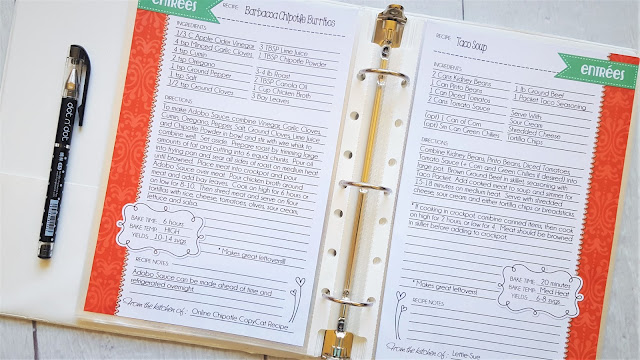 dot n dot.
ENTRÉES
RECIPE Barbacoa Chipotle Burritos
INGREDIENTS
1/3 C Apple Cider Vinegar
4 tsp Minced Garlic Cloves
4 tsp Cumin
2 tsp Oregano
1 tsp Ground Pepper
1 tsp Salt
1/2 tsp Ground Cloves
3 TBSP Lime Juice
1 TBSP Chipotle Powder
3-4 lb Roast
1 TBSP Canola Oil
1 Cup Chicken Broth
3 Bay Leaves
DIRECTIONS
To make Adobo Sauce, combine Vinegar, Garlic Cloves,
Cumin, Oregano, Pepper, Salt, Ground Cloves, Lime Juice
and Chipotle Powder in bowl and stir with wire whisk to
combine well. Set aside. Prepare roast by trimming large
amounts of fat and cutting into 6 meat chunks. Pour oil
into frying pan and sear all sides of roast on medium heat
until browned. Place seared roast into crockpot and pour
Adobo Sauce over meat. Pour chicken broth around
meat and add bay leaves. Cook on high for 6 hours or
on low for 8-10. Then shred meat and serve on flour
tortillas with rice, cheese, tomatoes, olives, sour cream,
lettuce and salsa.
BAKE TIME: 6 hours
BAKE TEMP: HIGH
YIELDS: 10-14 svgs
*Makes great leftovers!!
RECIPE NOTES
Adobo Sauce can be made ahead of time and
refrigerated overnight
From the kitchen of: Online Chipotle CopyCat Recipe
RECIPE Taco Soup
ENTRÉES
INGREDIENTS
2 Cans Kidney Beans
1 Can Pinto Beans
1 Can Diced Tomatoes
2 Cans Tomato Sauce
(opt) 1 Can of Corn
(opt) Sm Can Green Chilies
1 lb Ground Beef
1 Packet Taco Seasoning
Serve With:
Sour Cream
Shredded Cheese
Tortilla Chips
DIRECTIONS
Combine Kidney Beans, Pinto Beans, Diced Tomatoes,
Tomato Sauce (& Corn and Green Chilies if desired) into
large pot. Brown Ground Beef in skillet, seasoning with
Taco Packet. Add cooked meat to soup and simmer for
15-18 minutes on medium heat. Serve with shredded
cheese, sour cream and either tortilla chips or breadsticks.
*If cooking in crockpot, combine canned items, then cook
on high for 2 hours, or low for 4. Meat should be browned
in skillet before adding to crockpot.
*Makes great leftovers!
BAKE TIME: 20 minutes
BAKE TEMP: Med Heat
YIELDS: 6-8 svgs
RECIPE NOTES
From the kitchen of: Lettie-Sue